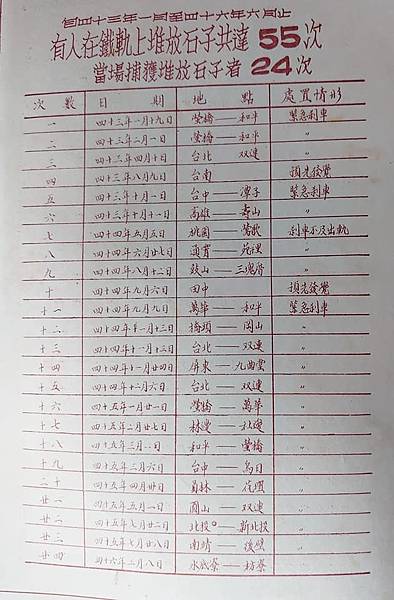 自四十三年一月至四十六年六月止
有人在鐵軌上堆放石子共達55次
當場捕獲堆放石子者24次
次數 日期 地點 處置情形
一 四十三年一月十九日 螢橋——和平 緊急刹車
二 四十三年二月一日 螢橋——和平 〃
三 四十三年四月十日 台北 双連 〃
四 四十三年八月九日 台南 預先發覺
五 四十三年十月一日 台中——潭子 緊急刹車
六 四十三年十月十一日 高雄——壽山 〃
七 四十四年五月五日 桃園——鶯歌 刹車不及出軌
八 四十四年六月廿七日 通霄——苑裡 〃
九 四十四年八月十二日 鼓山——三塊厝 〃
十 四十四年九月六日 田中 預先發覺
十一 四十四年九月九日 萬華——和平 緊急刹車
十二 四十四年十一月十三日 橋頭——岡山 〃
十三 四十四年十一月十三日 台北——双連 〃
十四 四十四年十一月廿四日 屏東——九曲堂 〃
十五 四十四年十二月六日 台北——双連 〃
十六 四十五年一月廿一日 螢橋——萬華 〃
十七 四十五年二月廿七日 林邊——社邊 〃
十八 四十五年三月二日 和平——螢橋 〃
十九 四十五年三月六日 台中——烏日 〃
二十 四十五年四月廿日 員林——花壇 〃
廿一 四十五年五月一日 圓山——双連 〃
廿二 四十五年七月廿二日 北投——新北投 〃
廿三 四十五年七月廿八日 南靖——後壁 〃
廿四 四十六年二月八日 水底寮——枋寮 〃